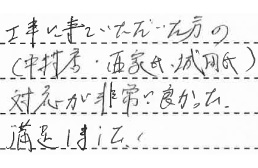 工事に来ていただいた方の
(中村氏・西家氏・成岡氏)
対応が非常に良かった。
満足しました。